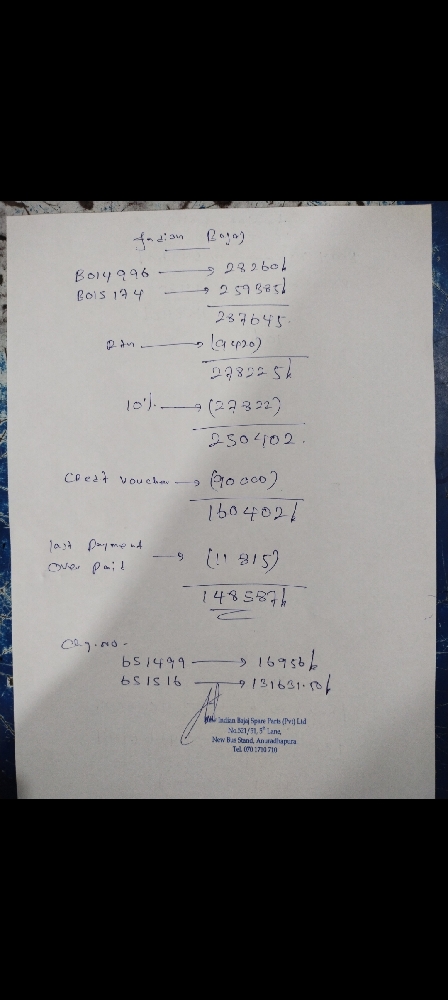 Indian Bajaj
B014996 → 28260/=
B015174 → 259385/=
287645.
RTN → (9420)
278225/=
10% → (27822)
250402.
Credit Voucher → (90000)
160402/=
last payment
over paid → (11 815)
148587/=
Chq. No -
651499 → 16956/=
651516 → 131631.50/=
New Indian Bajaj Spare Parts (Pvt) Ltd
No.521/31, 5th Lane,
New Bus Stand, Anuradhapura
Tel. 070 1710 710